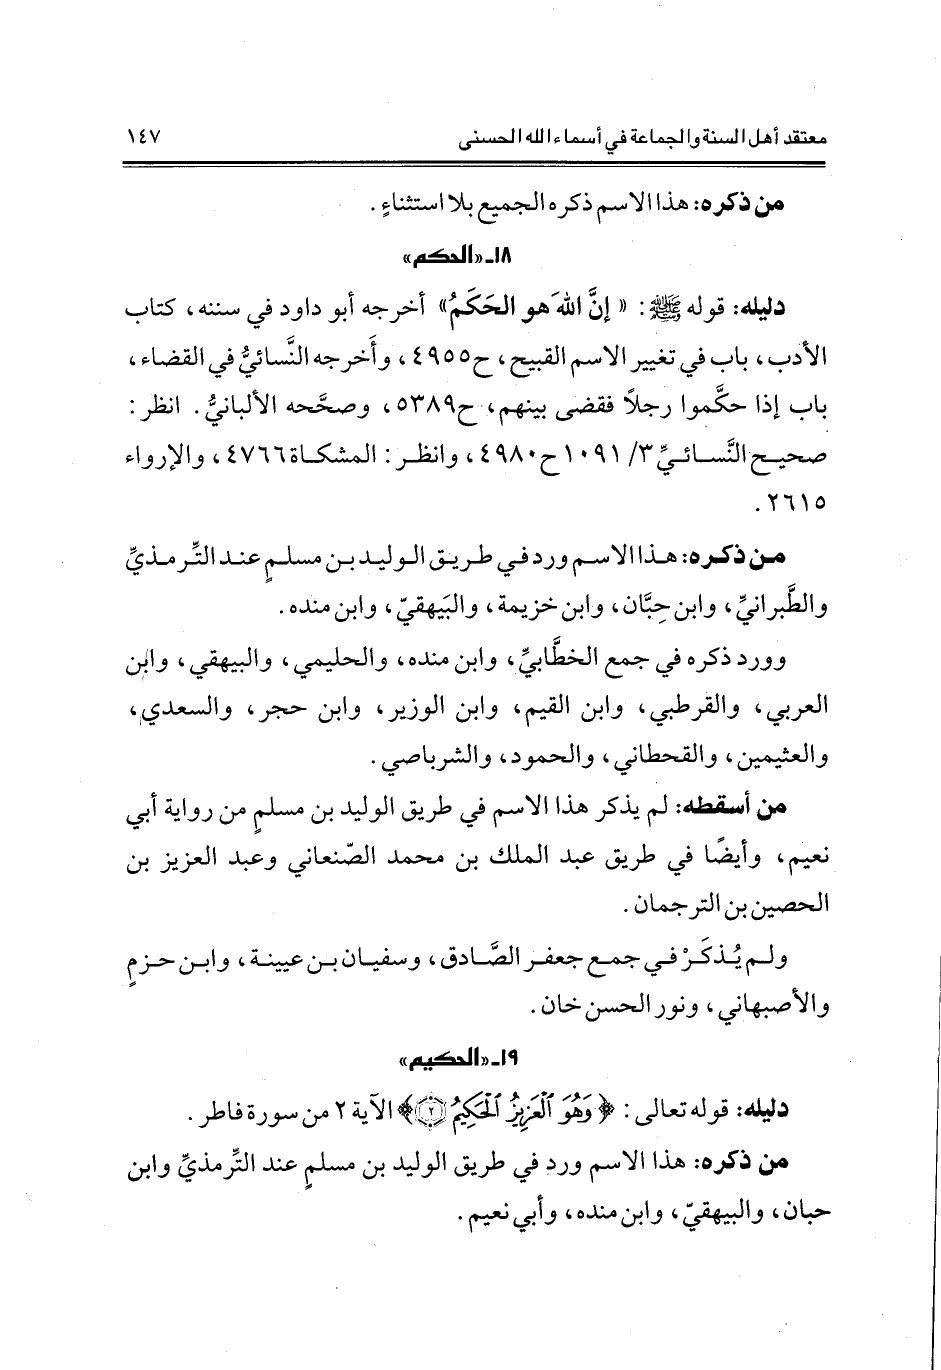 معتقد أهل السنة والجماعة في أسماء الله الحسنى ١٤٧
من ذكره: هذا الاسم ذكره الجميع بلا استثناءٍ.
١٨ـ «الحكم»
دليله: قوله ﷺ: « إنَّ اللهَ هو الحَكَمُ» أخرجه أبو داود في سننه، كتاب
الأدب، باب في تغيير الاسم القبيح، ح٤٩٥٥، وأخرجه النَّسائيُّ في القضاء،
باب إذا حكَّموا رجلاً فقضى بينهم، ح٥٣٨٩، وصحَّحه الألبانيُّ. انظر:
صحيح النَّسائيِّ ٣/ ١٠٩١ ح٤٩٨٠، وانظر: المشكاة ٤٧٦٦، والإرواء
٢٦١٥.
من ذكره: هذا الاسم ورد في طريق الوليد بن مسلمٍ عند التِّرمذيِّ
والطَّبرانيِّ، وابن حِبَّان، وابن خزيمة، والبَيهقيّ، وابن منده.
وورد ذكره في جمع الخطَّابيِّ، وابن منده، والحليمي، والبيهقي، وابن
العربي، والقرطبي، وابن القيم، وابن الوزير، وابن حجر، والسعدي،
والعثيمين، والقحطاني، والحمود، والشرباصي.
من أسقطه: لم يذكر هذا الاسم في طريق الوليد بن مسلمٍ من رواية أبي
نعيم، وأيضًا في طريق عبد الملك بن محمد الصّنعاني وعبد العزيز بن
الحصين بن الترجمان.
ولم يُذكَرْ في جمع جعفر الصَّادق، وسفيان بن عيينة، وابن حزمٍ
والأصبهاني، ونور الحسن خان.
١٩ـ «الحكيم»
دليله: قوله تعالى: ﴿وَهُوَ ٱلْعَزِيزُ ٱلْحَكِيمُ ٢﴾ الآية ٢ من سورة فاطر.
من ذكره: هذا الاسم ورد في طريق الوليد بن مسلمٍ عند التِّرمذيِّ وابن
حبان، والبيهقيّ، وابن منده، وأبي نعيم.